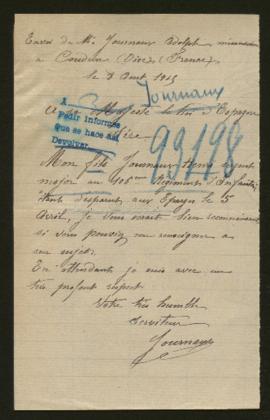 Envoi de Mr Journaux Adolph
à Coudun (Oise) (France)
le 8 Aout 1915
Journaux
A Sa Majesté le Roi d'Espagne
A
Pedir informes
que se hace así
Devolver
Sire
99198
Mon fils Journaux Henri sergent
major au 106e Régiment d'Infanterie
étant disparut aux Eparges le 5
Avril, je vous serait bien reconnaissant
si vous pouviez me renseigner a
son sujet.
En attendant je suis avec un
très profond respect
Votre très humble
serviteur
Journaux